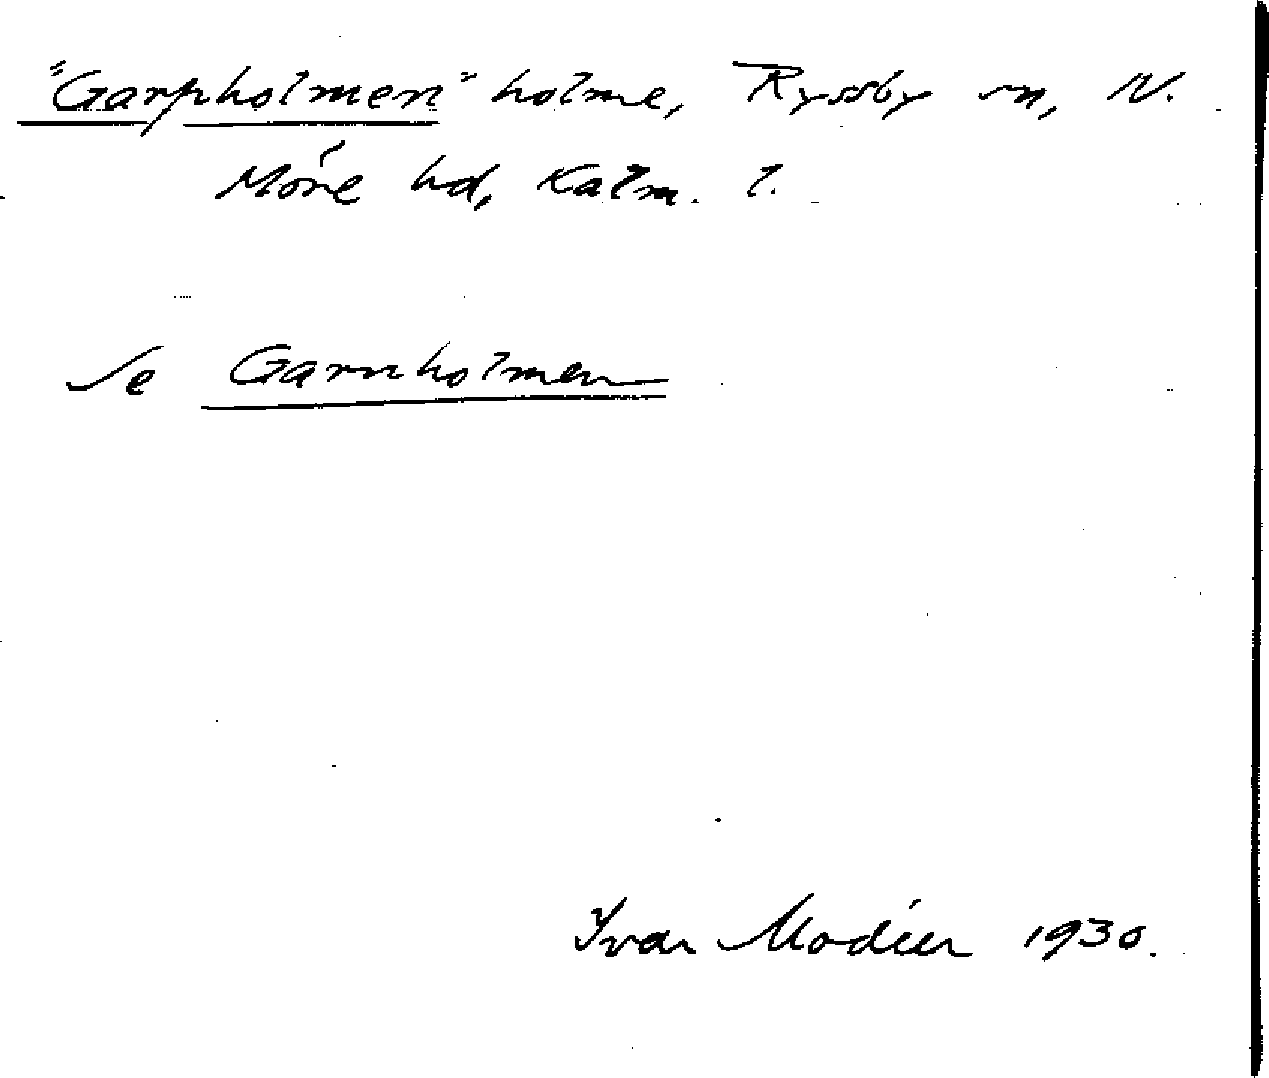 "Garpholmen" holme, Ryssby sn, N.
Möre hd, Kalm. l.
Se Garnholmen
Ivar Modéer 1930.